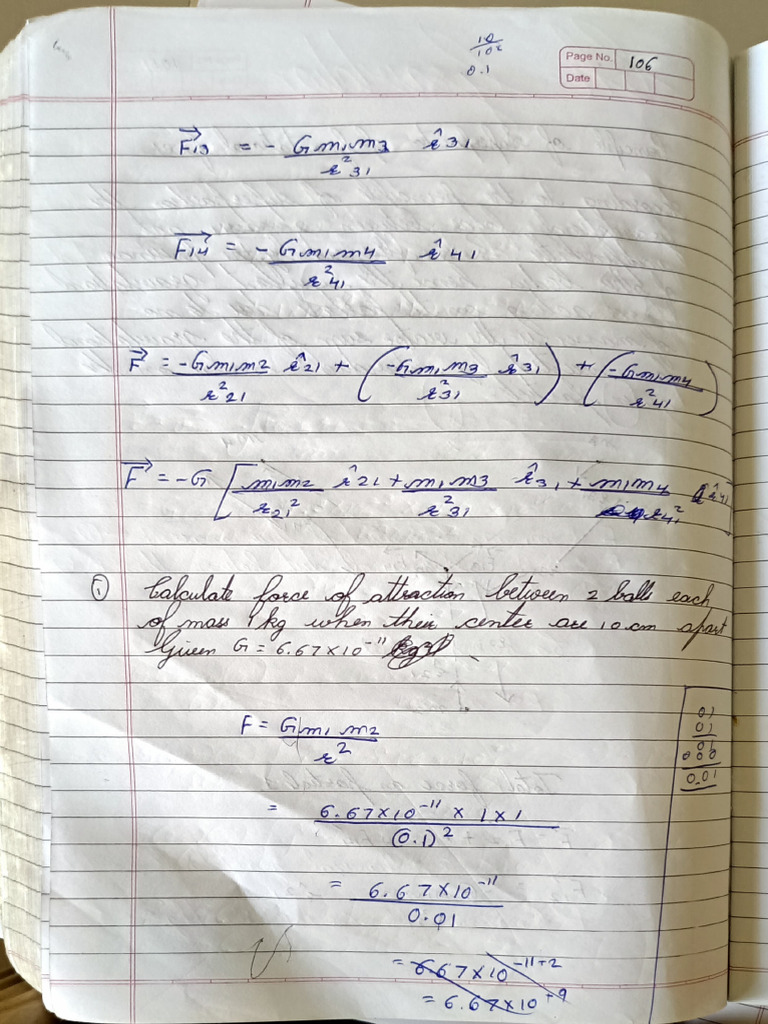 10
10²
0.1
Page No. 106
Date
F₁₃ = - G m₁ m₃ / r²₃₁ r̂₃₁
F₁₄ = - G m₁ m₄ / r²₄₁ r̂₄₁
F = -G m₁ m₂ / r²₂₁ r̂₂₁ + ( -G m₁ m₃ / r²₃₁ r̂₃₁ ) + ( -G m₁ m₄ / r²₄₁ )
F = -G [ m₁ m₂ / r₂₁² r̂₂₁ + m₁ m₃ / r²₃₁ r̂₃₁ + m₁ m₄ / r₄₁² r̂₄₁
① Calculate force of attraction between 2 balls each
of mass 1 kg when their center are 10 cm apart
Given G = 6.67 × 10⁻¹¹
F = G m₁ m₂ / r²
01
01
01
000
0.01
= 6.67 × 10⁻¹¹ × 1 × 1 / (0.1)²
= 6.67 × 10⁻¹¹ / 0.01
= 6.67 × 10⁻¹¹⁺²
= 6.67 × 10⁺⁹